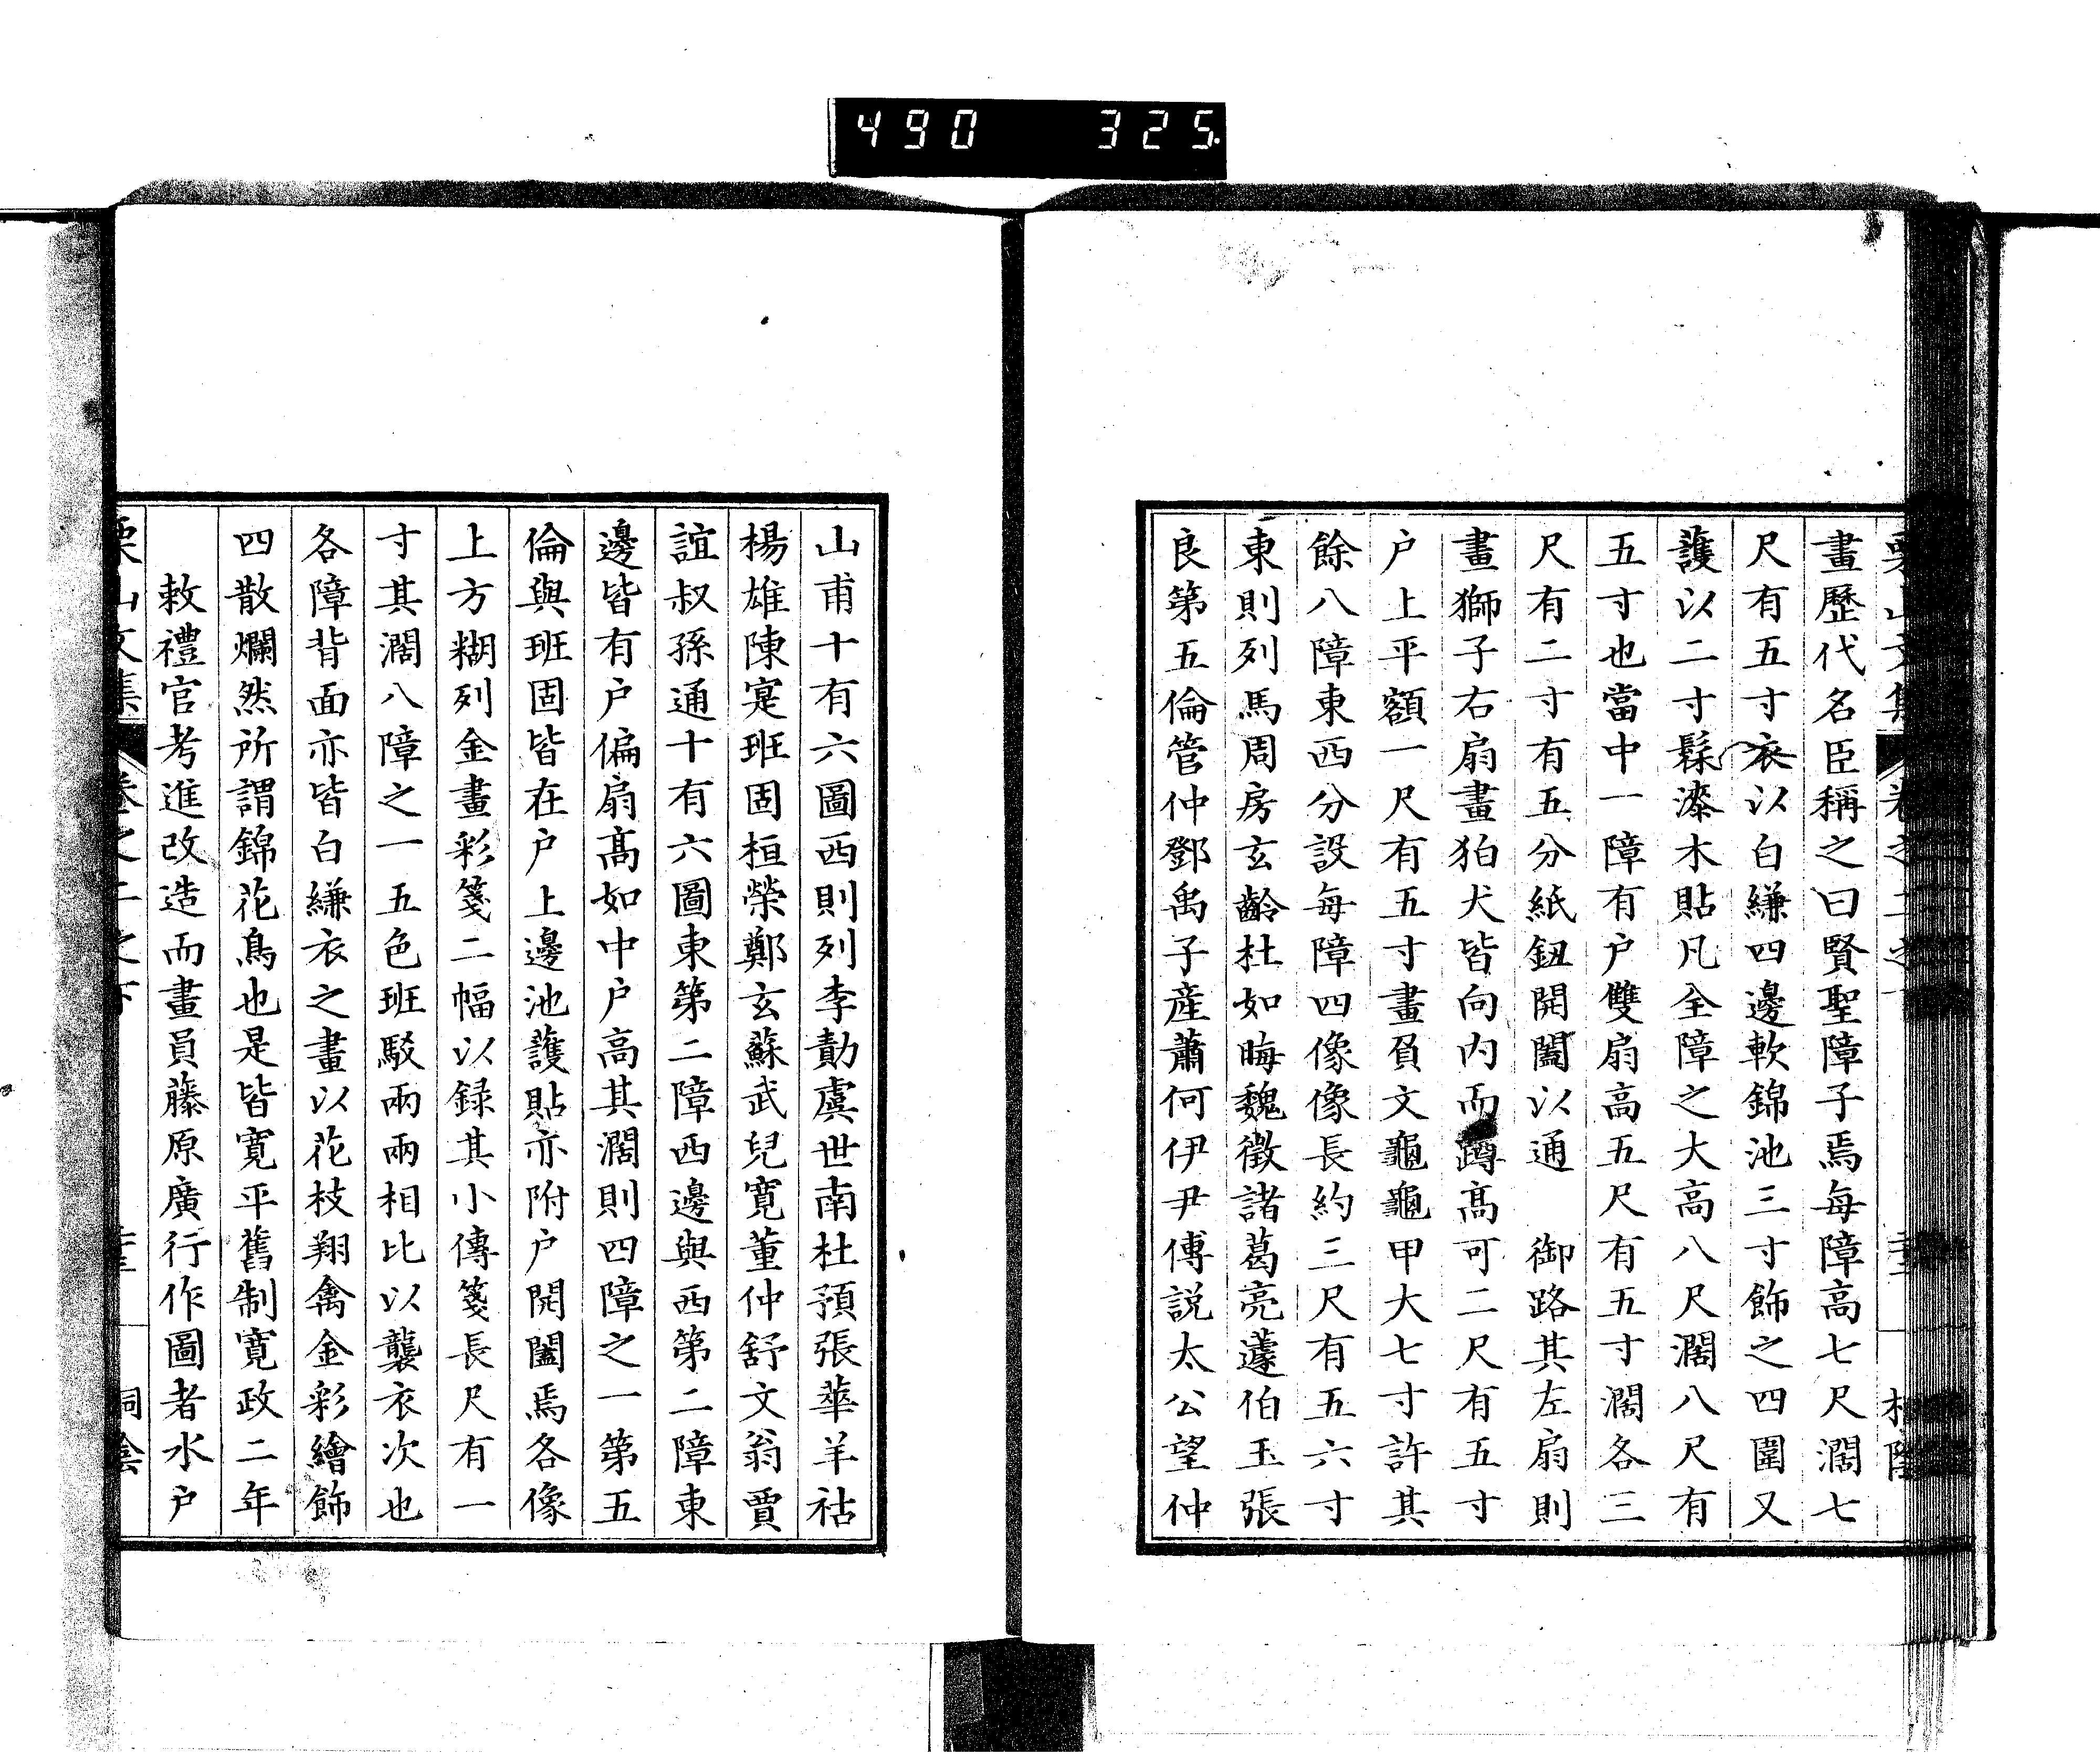 490 325
畫歷代名臣稱之曰賢聖障子焉每障高七尺濶七
尺有五寸衣以白縑四邊軟錦池三寸飾之四圍又
護以二寸髹漆木貼凡全障之大高八尺濶八尺有
五寸也當中一障有户雙扇高五尺有五寸濶各三
尺有二寸有五分紙鈕開闔以通　御路其左扇則
畫獅子右扇畫狛犬皆向内而蹲髙可二尺有五寸
户上平額一尺有五寸畫負文龜龜甲大七寸許其
餘八障東西分設每障四像像長約三尺有五六寸
東則列馬周房玄齡杜如晦魏徵諸葛亮蘧伯玉張
良第五倫管仲鄧禹子産蕭何伊尹傅説太公望仲
山甫十有六圖西則列李勣虞世南杜預張華羊祜
楊雄陳寔班固桓榮鄭玄蘇武兒寛董仲舒文翁賈
誼叔孫通十有六圖東第二障西邊與西第二障東
邊皆有户偏扇髙如中户高其濶則四障之一第五
倫與班固皆在户上邊池護貼亦附户開闔焉各像
上方糊列金畫彩箋二幅以録其小傳箋長尺有一
寸其濶八障之一五色班駁兩兩相比以襲衣次也
各障背面亦皆白縑衣之畫以花枝翔禽金彩繪飾
四散爛然所謂錦花鳥也是皆寛平舊制寛政二年
敕禮官考進改造而畫員藤原廣行作圖者水户
栗山文集　卷之二之下